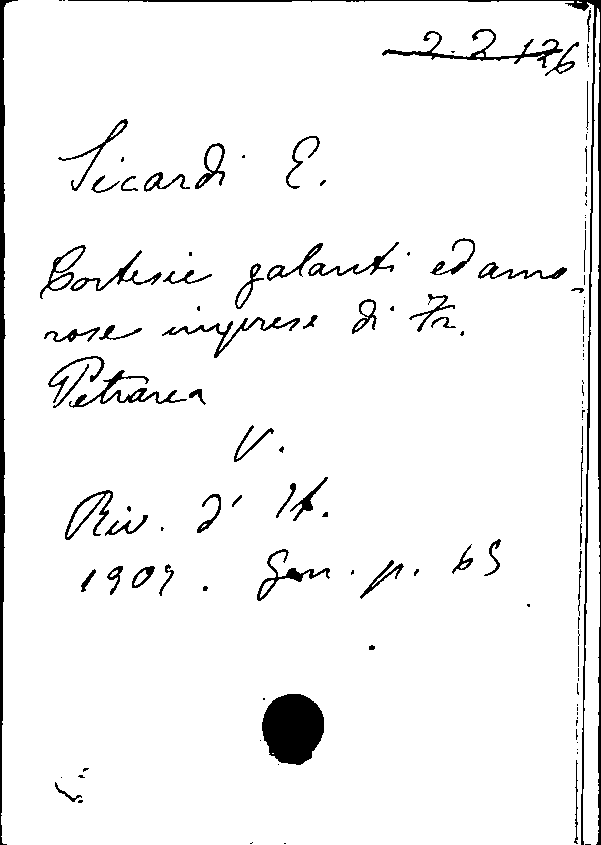 2.2.126
Sicardi E.
Cortesie galanti ed amo-
rose imprese di Fr.
Petrarca
V.
Riv. d' It.
1907. Gen. p. 65